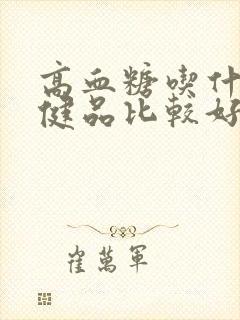 高血糖喫什
健品比較好
崔萬軍